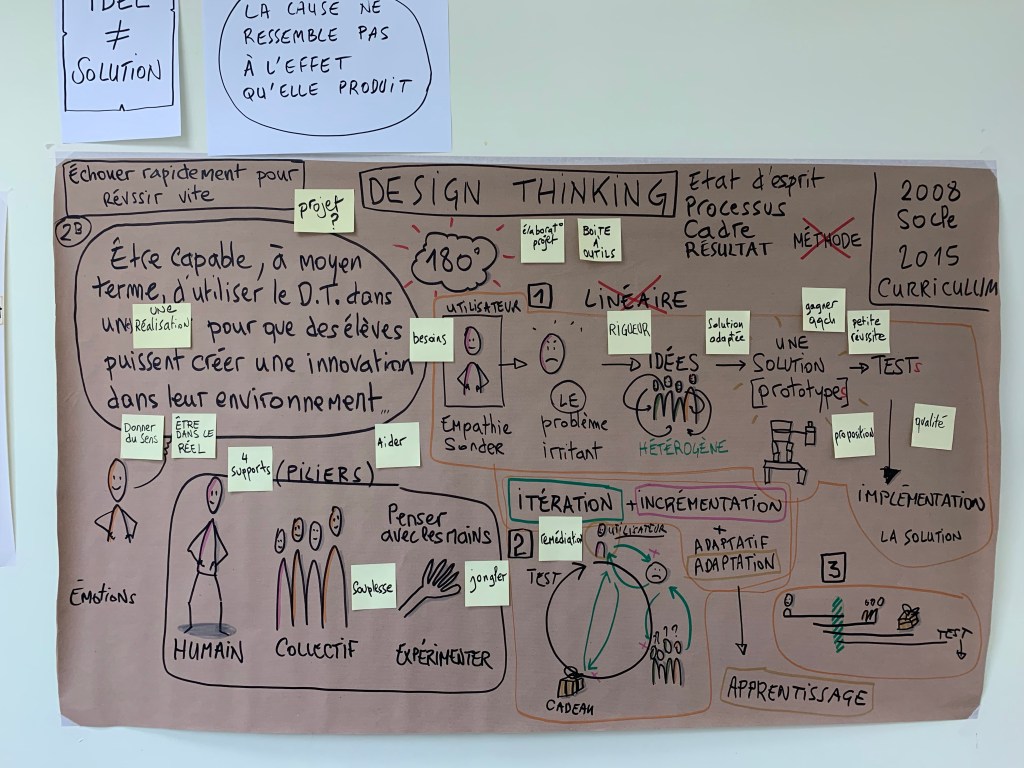 ≠
SOLUTION
LA CAUSE NE
RESSEMBLE PAS
À L'EFFET
QU'ELLE PRODUIT
Échouer rapidement pour
réussir vite
projet
?
DESIGN THINKING
Etat d'esprit
Processus
Cadre
RÉSULTAT
MÉTHODE
2008
Socle
2015
CURRICULUM
2B
Être capable, à moyen
terme, d'utiliser le D.T. dans
une
UNE
Réalisation
pour que des élèves
puissent créer une innovation
dans leur environnement...
180°
élaborat°
projet
BOITE
À
OUTILS
1
LINÉAIRE
UTILISATEUR
besoins
Empathie
Sonder
LE
problème
irritant
RIGUEUR
IDÉES
HÉTÉROGÈNE
Solution
adaptée
UNE
SOLUTION
[prototypes]
gagner
qqch
petite
réussite
TESTs
proposition
qualité
IMPLÉMENTATION
LA SOLUTION
Donner
du Sens
ÊTRE
DANS LE
RÉEL
Émotions
4
supports
(PILIERS)
Aider
HUMAIN
COLLECTIF
Penser
avec les mains
Souplesse
jongler
EXPÉRIMENTER
ITÉRATION + INCRÉMENTATION
+
ADAPTATIF
ADAPTATION
2
remédiation
UTILISATEUR
TEST
CADEAU
APPRENTISSAGE
3
TEST